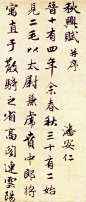 秋興賦 并序
潘安仁
晉十有四年余春秋三十有二始
見二毛以太尉掾兼虎賁中郎將
寓直于散騎之省高閣連雲陽